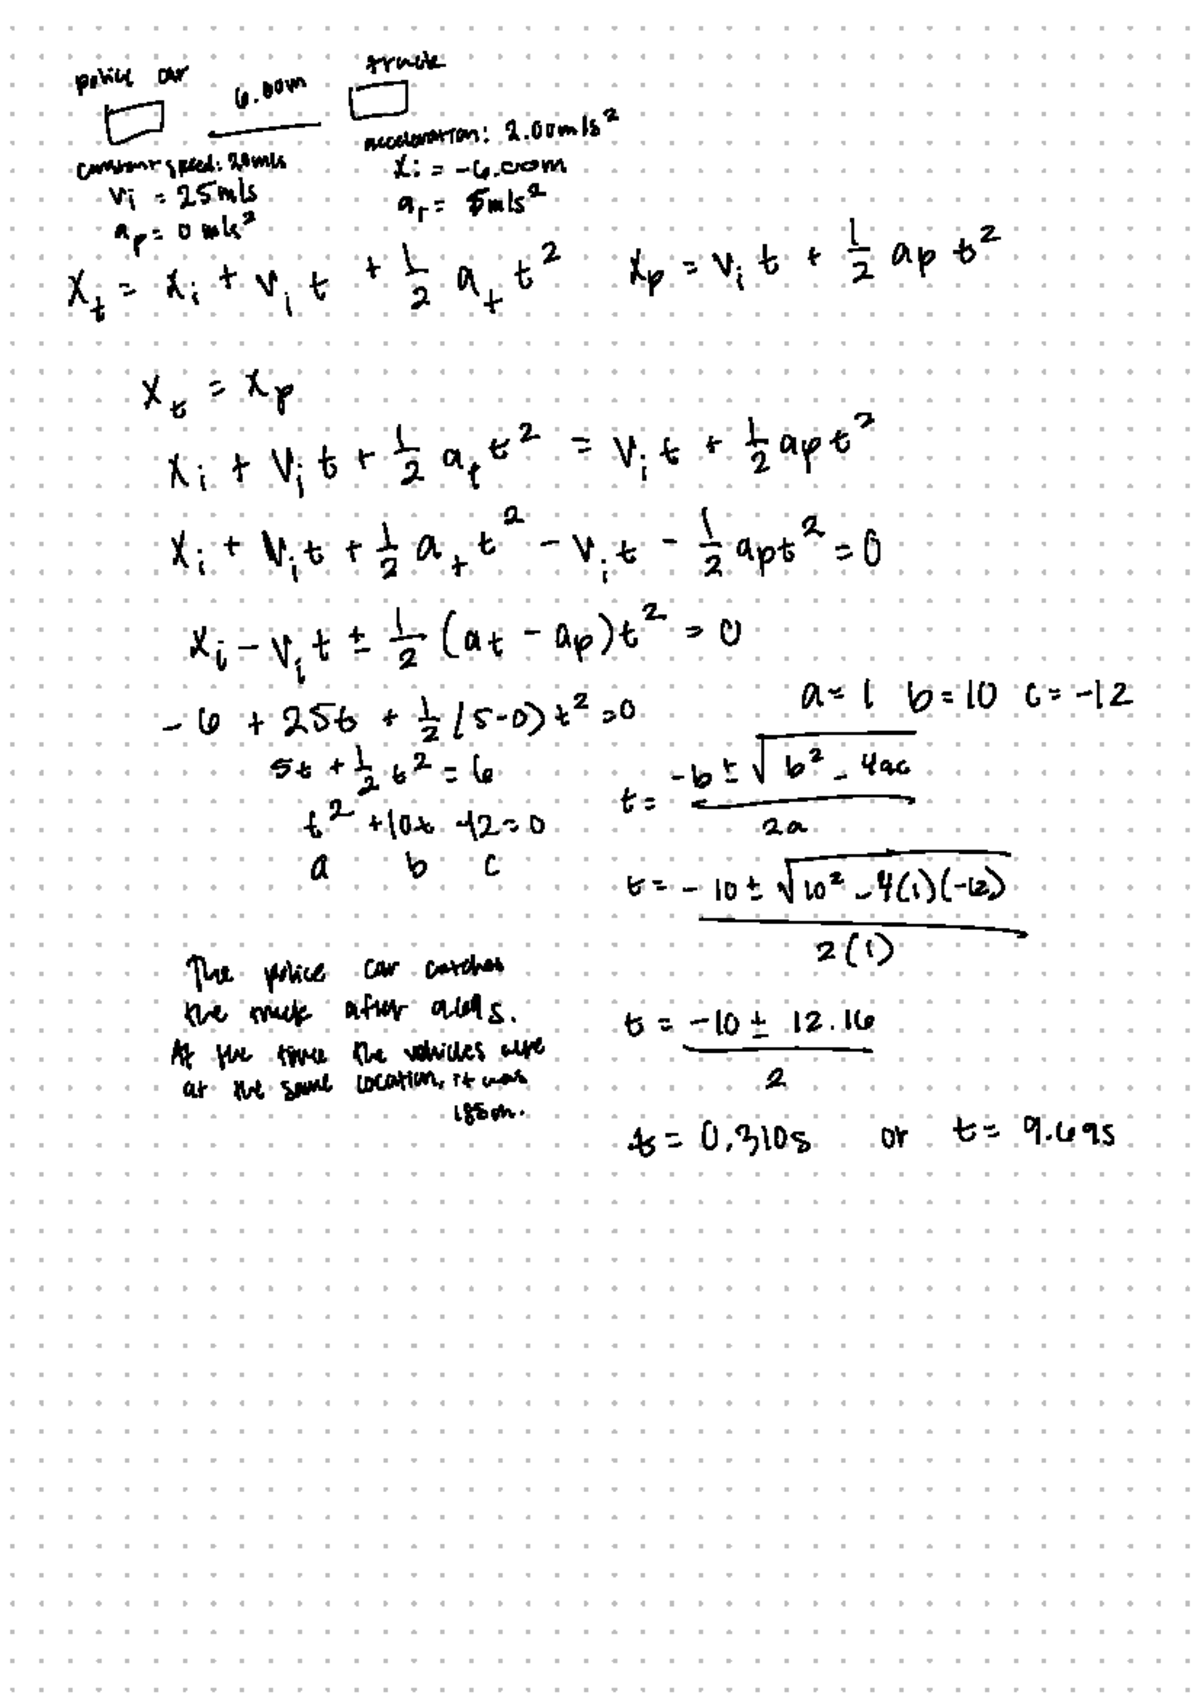 police car 6.00m truck
constant speed: 20m/s acceleration: 2.00m/s²
vᵢ = 25m/s xᵢ = -6.00m
aₚ = 0 m/s² aₜ = 5m/s²
xₜ = xᵢ + vᵢt + 1/2 aₜt² xₚ = vᵢt + 1/2 aₚt²
xₜ = xₚ
xᵢ + vᵢt + 1/2 aₜt² = vᵢt + 1/2 aₚt²
xᵢ + vᵢt + 1/2 aₜt² - vᵢt - 1/2 aₚt² = 0
xᵢ - vᵢt ± 1/2 (aₜ - aₚ)t² = 0
-6 + 25t + 1/2 (5-0)t² = 0
5t + 1/2 t² = 6
t² + 10t -12 = 0
a b c
a = 1 b = 10 c = -12
t = (-b ± √(b² - 4ac)) / 2a
t = (-10 ± √(10² - 4(1)(-12))) / 2(1)
t = (-10 ± 12.16) / 2
t = 0.310s or t = 9.69s
The police car catches
the truck after 9.69s.
At the time the vehicles were
at the same location, it was
185m.